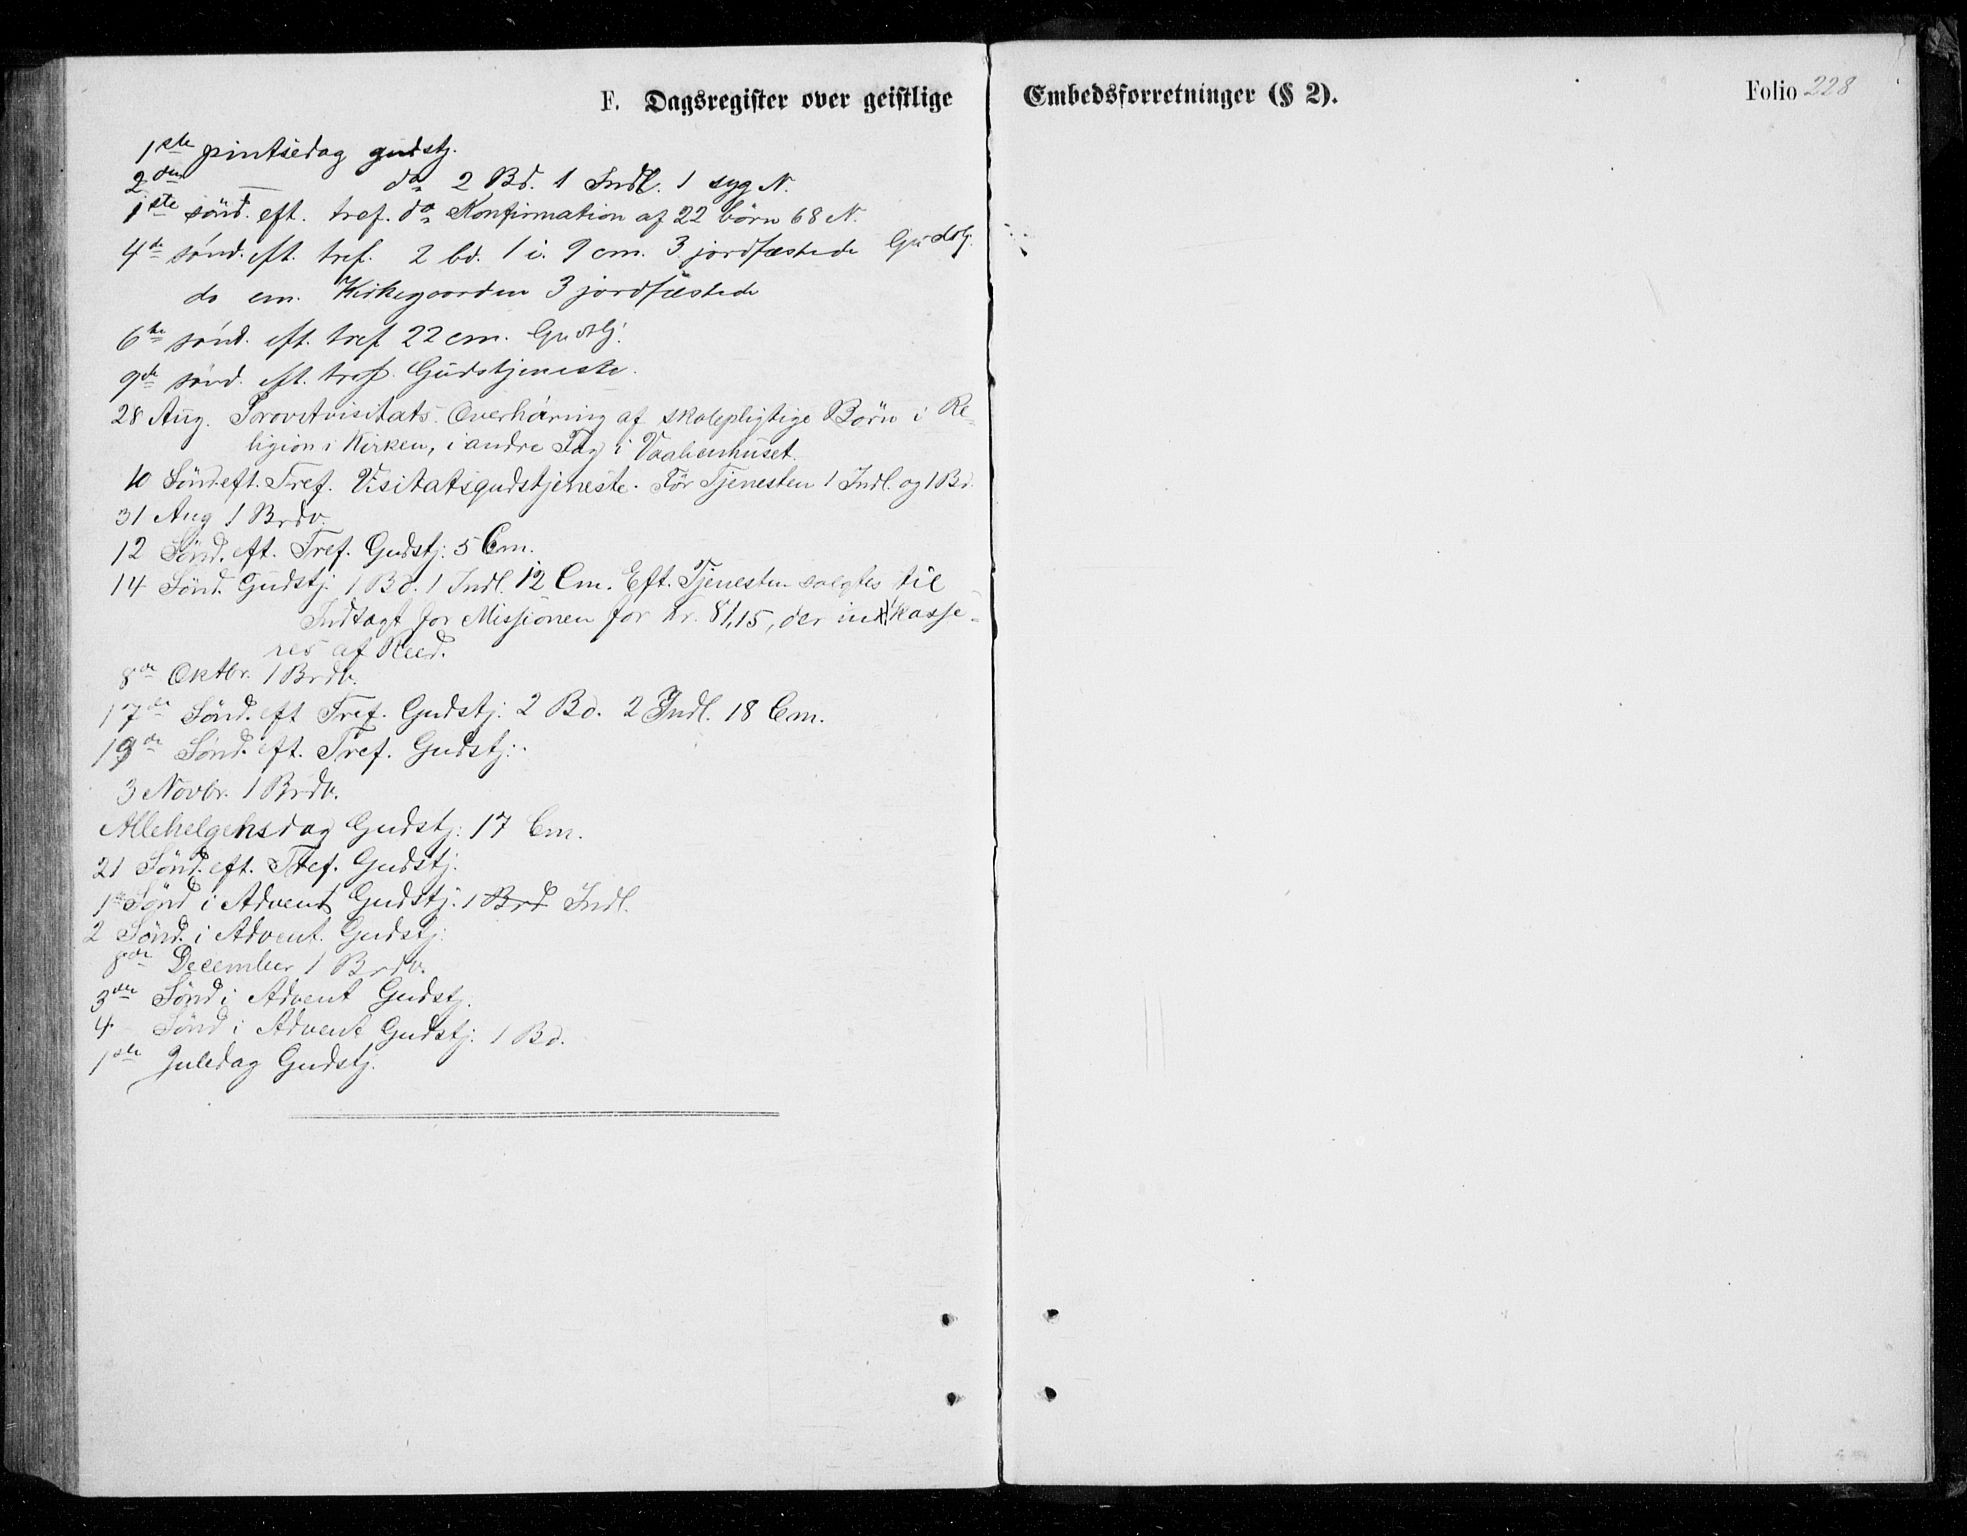 F. Dagsregister over geistlige Embedsforretninger (§ 2).
Folio 228
1ste pintsedag gudstj.
2den — do 2 Bd. 1 Indl. 1 syg N.
1ste sönd. eft. tref. do Konfirmation af 22 börn 68 N.
4de sönd. eft. tref. 2 bd. 1 i. 9 cm. 3 jordfæstede Gudstj.
do em. Kirkegaarden 3 jordfæstede
6te sönd. eft. tref 22 cm. Gudstj.
9de sönd. eft. tref. Gudstjeneste.
28 Aug. Provstvisitats. Overhöring af skolepligtige Börn i Re-
ligion i Kirken, i andre Fag i Vaabenhuset.
10 Sönd eft. Tref. Visitatsgudstjeneste. För Tjenesten 1 Indl. og 1 Bd.
31 Aug 1 Brdv.
12 Sönd. eft. Tref. Gudstj: 5 Cm.
14 Sönd. Gudstj. 1 Bd. 1 Indl. 12 Cm. Eft. Tjenesten solgtes til
Indtægt for Missionen for Kr. 81,15, der indkasse-
res af Reed.
8de Oktbr. 1 Brdv.
17de Sönd. eft Tref. Gudstj: 2 Bd. 2 Indl. 18 Cm.
19de Sönd. eft. Tref. Gudstj:
3 Novbr. 1 Brdv.
Allehelgensdag Gudstj: 17 Cm.
21 Sönd. eft. Tref. Gudstj.
1ste Sönd i Advent Gudstj: 1 Brd Indl.
2 Sönd. i Advent. Gudstj:
8de December 1 Brdv.
3die Sönd i Advent Gudstj.
4 Sönd i Advent Gudstj: 1 Bd.
1ste Juledag Gudstj.